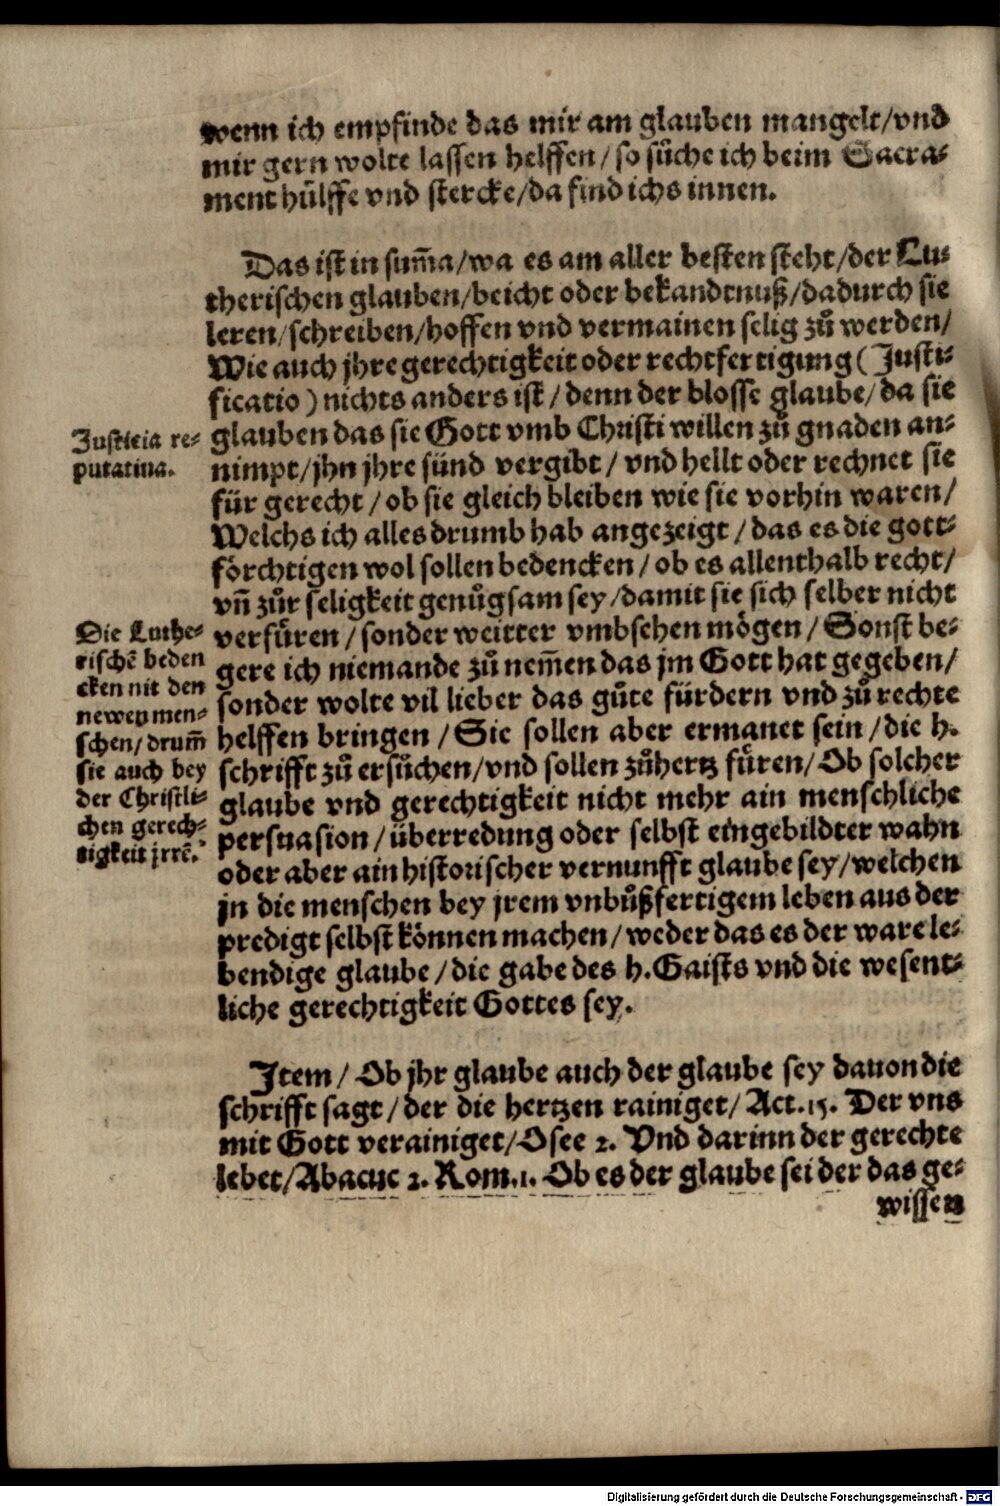 wenn ich empfinde das mir am glauben mangelt/vnd
mir gern wolte lassen helffen/so sůche ich beim Sacra⸗
ment hülffe vnd stercke/da find ichs innen.
Das ist in sum̃a/wa es am aller besten steht/der Lu⸗
therischen glauben/beicht oder bekandtnuß/dadurch sie
leren/schreiben/hoffen vnd vermainen selig zů werden/
Wie auch jhre gerechtigkeit oder rechtfertigung (Justi⸗
ficatio) nichts anders ist/denn der blosse glaube/da sie
glauben das sie Gott vmb Christi willen zů gnaden an⸗
nimpt/jhn jhre sünd vergibt/vnd hellt oder rechnet sie
für gerecht/ob sie gleich bleiben wie sie vorhin waren/
Welchs ich alles drumb hab angezeigt/das es die gott⸗
förchtigen wol sollen bedencken/ob es allenthalb recht/
vñ zůr seligkeit genůgsam sey/damit sie sich selber nicht
verfüren/sonder weitter vmbsehen mögen/Sonst be⸗
gere ich niemande zů nem̃en das jm Gott hat gegeben/
sonder wolte vil lieber das gůte fürdern vnd zů rechte
helffen bringen/Sie sollen aber ermanet sein/die h.
schrifft zů ersůchen/vnd sollen zůhertz füren/Ob solcher
glaube vnd gerechtigkeit nicht mehr ain menschliche
persuasion/überredung oder selbst eingebildter wahn
oder aber ain historischer vernunfft glaube sey/welchen
jn die menschen bey jrem vnbůßfertigem leben aus der
predigt selbst können machen/weder das es der ware le⸗
bendige glaube/die gabe des h. Gaists vnd die wesent⸗
liche gerechtigkeit Gottes sey.
Justicia re⸗
putatiua.
Die Luthe⸗
rischẽ beden
cken nit den
newen men⸗
schen/drum̃
sie auch bey
der Christli⸗
chen gerech⸗
tigkeit jrrẽ.
Item/Ob jhr glaube auch der glaube sey dauon die
schrifft sagt/der die hertzen rainiget/Act.15. Der vns
mit Gott verainiget/Osee 2. Vnd darinn der gerechte
lebet/Abacuc 2. Rom.1. Ob es der glaube sei der das ge⸗
wissen
Digitalisierung gefördert durch die Deutsche Forschungsgemeinschaft - DFG